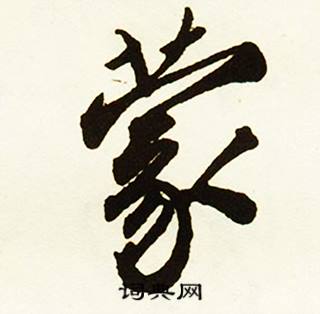 蒙
词典网